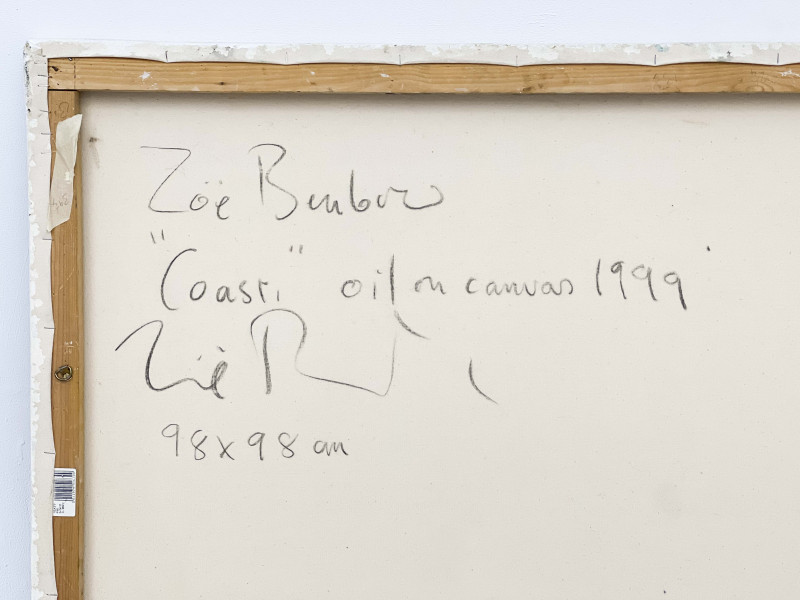 Zoë Benbow
"Coast" oil on canvas 1999
Zoë B
98 x 98 cm